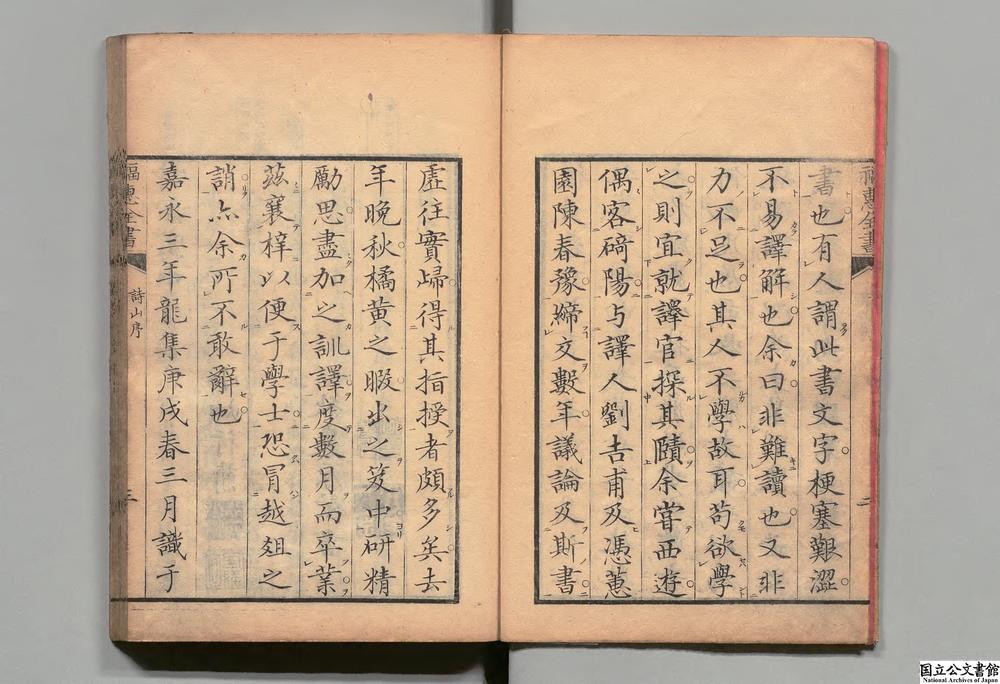 書也有人謂此書文字梗塞艱澀
不易譯解也余曰非難讀也又非
力不足也其人不學故耳苟欲學
之則宜就譯官探其賾余嘗西遊
偶客碕陽与譯人劉吉甫及馮蕙
園陳春豫締交數年議論及斯書
虛往實歸得其指授者頗多矣去
年晚秋橘黃之暇出之笈中研精
勵思盡加之訓譯度數月而卒業
茲襄梓以便于學士恐冒越俎之
誚亦余所不敢辭也
嘉永三年龍集庚戌春三月識于
福惠全書
詩山序
三
福惠全書
二
国立公文書館
National Archives of Japan